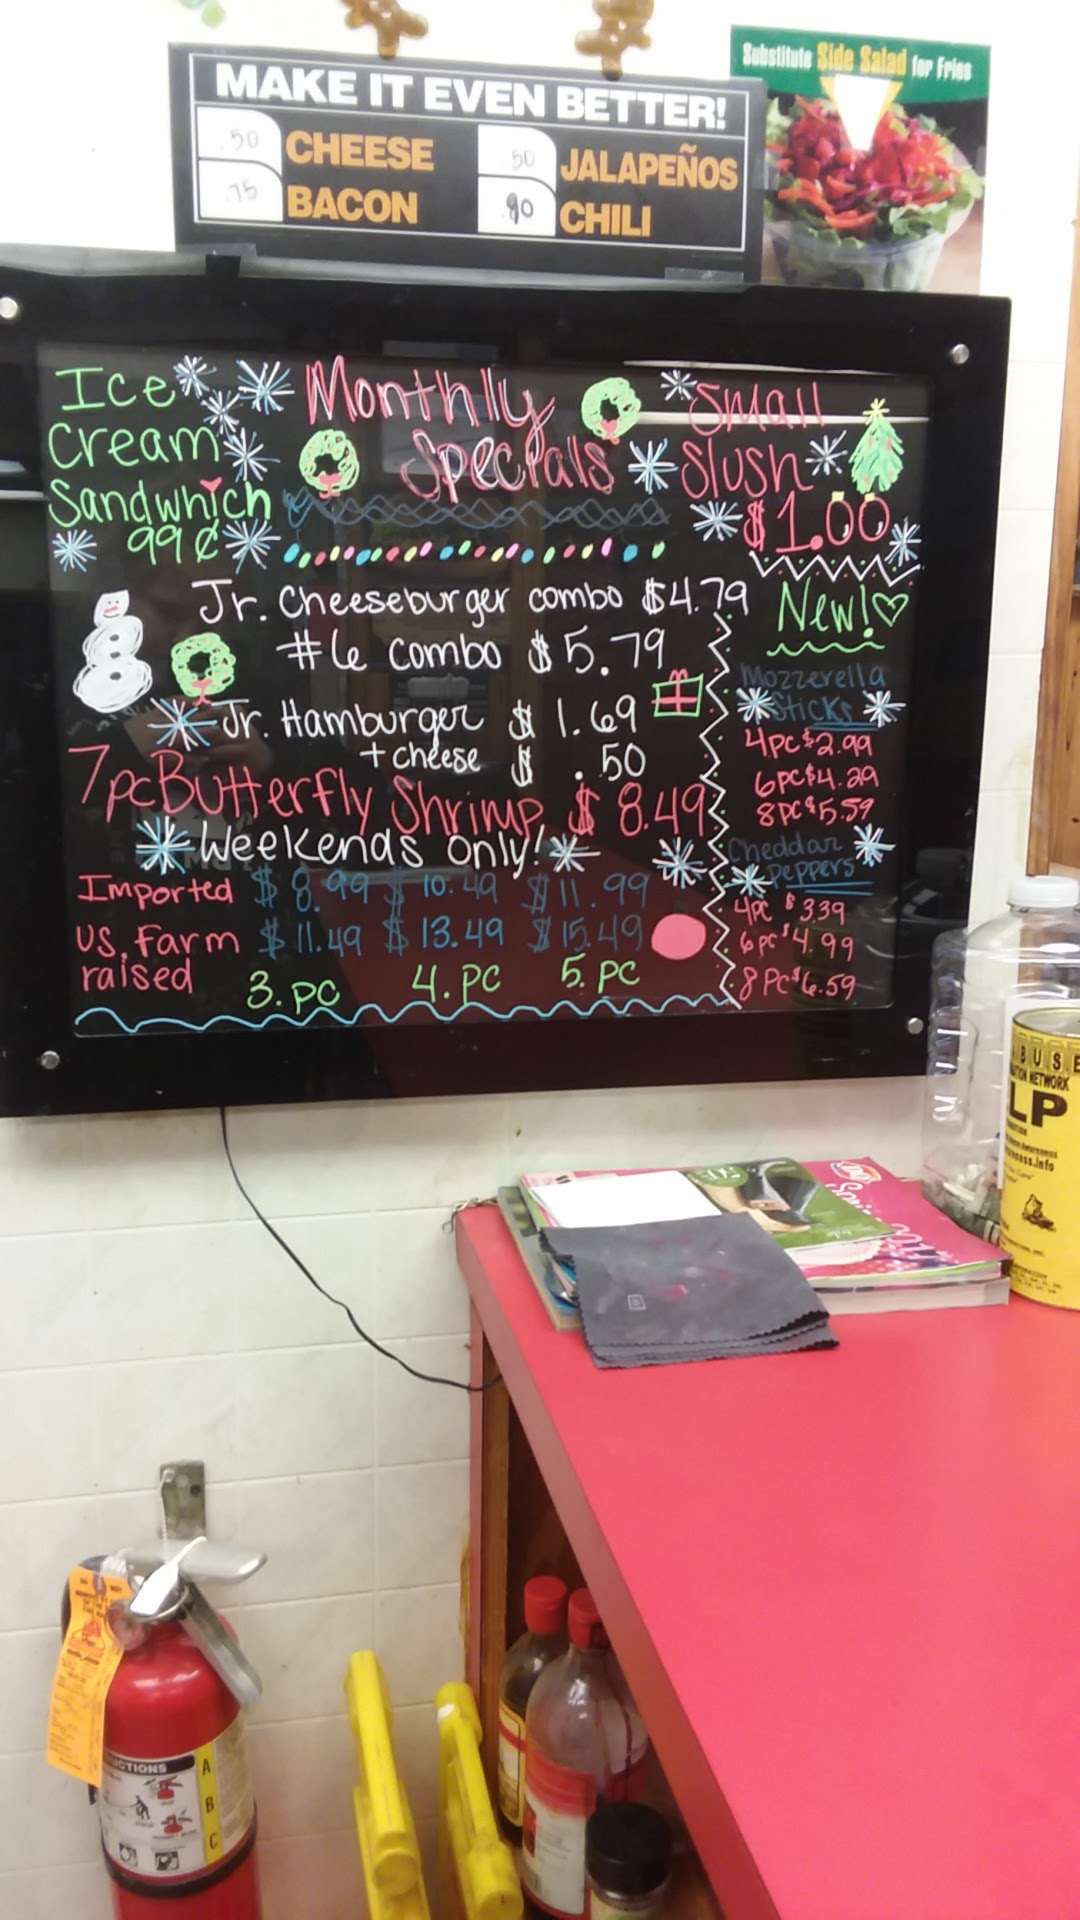 MAKE IT EVEN BETTER!
.50 CHEESE .50 JALAPEÑOS
.75 BACON .90 CHILI
Substitute Side Salad for Fries
Ice
Cream
Sandwhich
99¢
Monthlly
Specials
Small
Slush
$1.00
Jr. Cheeseburger combo $4.79
#6 combo $5.79
Jr. Hamburger $1.69
+cheese $.50
7pc Butterfly Shrimp $8.49
Weekends only!
Imported $8.99 $10.49 $11.99
US. Farm $11.49 $13.49 $15.49
raised
3.pc 4.pc 5.pc
New!
Mozzerella
Sticks
4pc $2.99
6pc $4.29
8pc $5.59
Cheddar
peppers
4pc $3.39
6pc $4.99
8pc $6.59
ABUSE
NETWORK
LP
A
B
C